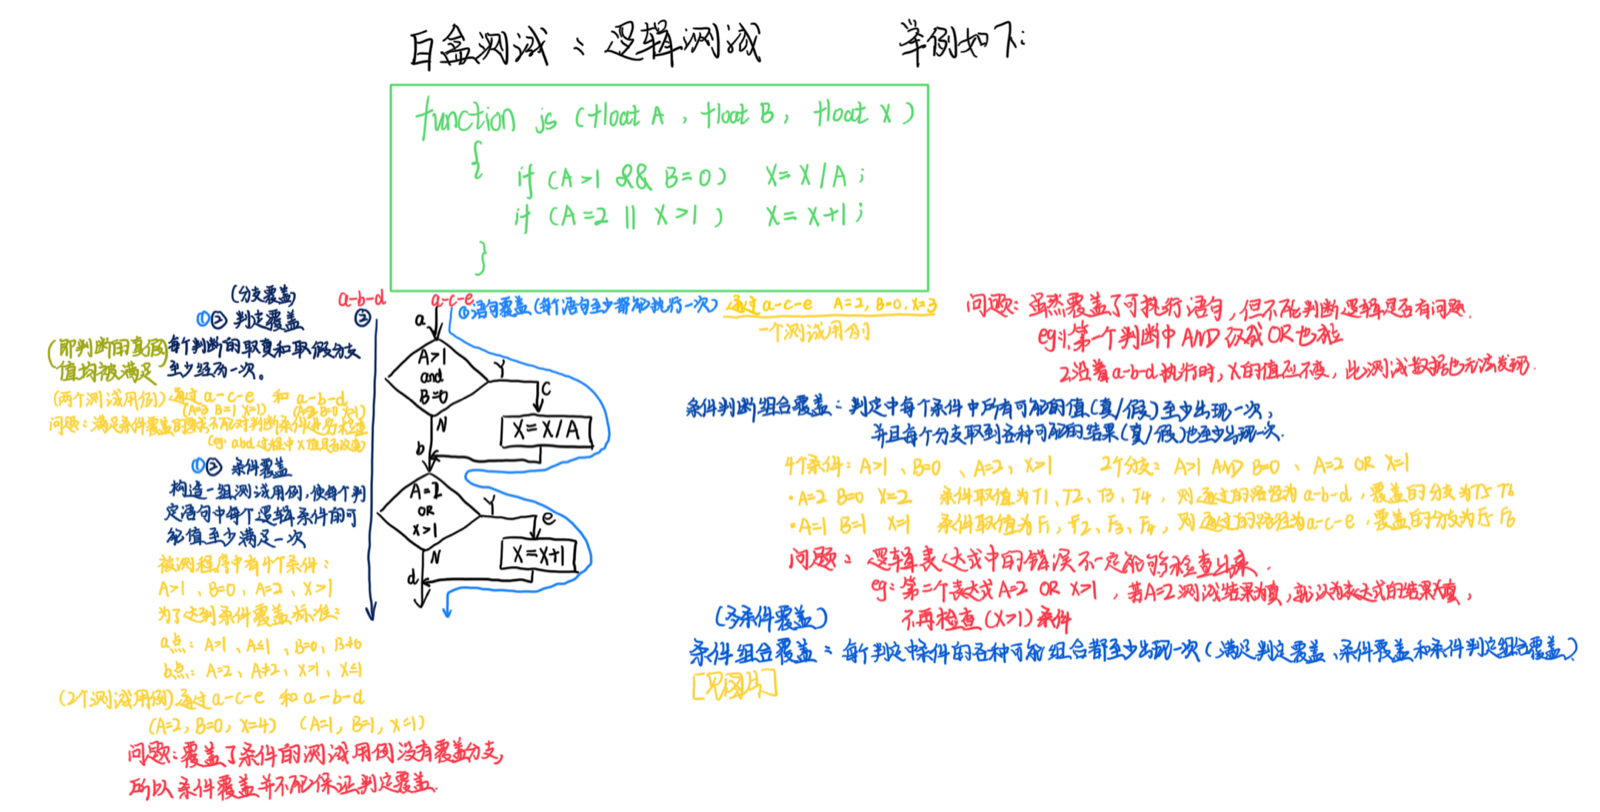 白盒测试：逻辑测试 举例如下：
function js (float A , float B , float X )
{
if (A>1 && B=0) X= X/A ;
if (A=2 || X>1 ) X= X+1 ;
}
(分支覆盖)
①② 判定覆盖
(即判断的真假值均被满足)
每个判断的取真和取假分支
至少经历一次。
(两个测试用例) 通过a-c-e 和 a-b-d
①② 条件覆盖
构造一组测试用例，使每个判
定语句中每个逻辑条件的可
能值至少满足一次
被测程序中有4个条件：
A>1 、B=0 、A=2 、X>1
为了达到条件覆盖标准：
a点：A>1 、A≤1 、B=0、B≠0
b点：A=2、A≠2、X>1、X≤1
(2个测试用例) 通过a-c-e 和 a-b-d
(A=2, B=0, X=4) (A=1, B=1, X=1)
问题：覆盖了条件的测试用例没有覆盖分支,
所以条件覆盖并不能保证判定覆盖.
a-b-d
②
a-c-e
a
A>1
and
B=0
Y
c
N
X=X/A
b
A=2
OR
X>1
Y
e
N
X=X+1
d
①语句覆盖(每个语句至少都能执行一次) 通过a-c-e A=2, B=0, X=3
一个测试用例
问题：虽然覆盖了可执行语句，但不能判断逻辑是否有问题.
eg:1.第一个判断中AND 仅成OR也能
2.沿着a-b-d执行时，X的值应不变，此测试数据也无法发现.
条件判断组合覆盖：判定中每个条件中所有可能的值(真/假)至少出现一次，
并且每个分支取到各种可能的结果(真/假)也至少出现一次.
4个条件：A>1 、B=0 、A=2 、X>1 2个分支：A>1 AND B=0 、A=2 OR X=1
·A=2 B=0 X=2 条件取值为T1、T2、T3、T4，则通过的路径为a-b-d，覆盖的分支为T5 T6
·A=1 B=1 X=1 条件取值为F1、F2、F3、F4，则通过的路径为a-c-e，覆盖的分支为F5 F6
问题：逻辑表达式中的错误不一定能够检查出来.
eg：第二个表达式A=2 OR X>1 ，若A=2测试结果为真，就认为表达式的结果为真，
不再检查(X>1)条件
(多条件覆盖)
条件组合覆盖：每个判定中条件的各种可能组合都至少出现一次(满足判定覆盖、条件覆盖和条件判定组合覆盖)
[见图片]